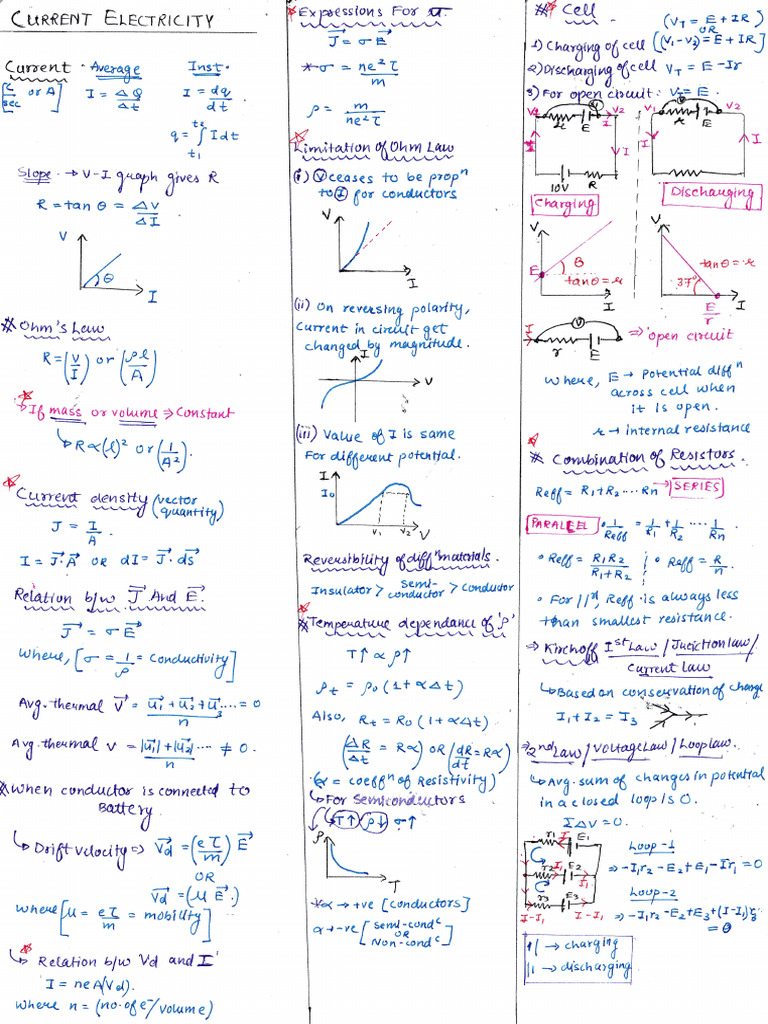 CURRENT ELECTRICITY
Current
Average
Inst.
[C/sec or A]
I = ΔQ/Δt
I = dq/dt
q = ∫ I dt
t2
t1
Slope → V-I graph gives R
R = tan θ = ΔV/ΔI
V
θ
I
* Ohm's Law
R = (V/I) or (ρl/A)
If mass or volume ⇒ Constant
R ∝ (l)² or (1/A²).
Current density (vector quantity)
J = I/A.
I = J⃗.A⃗ OR dI = J⃗.ds⃗
Relation b/w J⃗ And E⃗.
J⃗ = σE⃗
Where, [σ = 1/ρ = Conductivity]
Avg. thermal V⃗ = u⃗1 + u⃗2 + u⃗3..../n = 0
Avg. thermal V = |u⃗1| + |u⃗2|..../n ≠ 0.
* When conductor is connected to
Battery
Drift velocity ⇒ V⃗d = (eτ/m) E⃗
OR
V⃗d = (μE⃗.)
where [μ = eτ/m = mobility]
Relation b/w Vd and I
I = neA(Vd).
where n = (no. of e⁻/volume)
Expressions For
J⃗ = σE⃗
* σ = ne²τ/m
ρ = m/ne²τ
Limitation of Ohm Law
(i) V ceases to be propⁿ
to I for conductors
V
I
(ii) On reversing polarity,
Current in circuit get
changed by magnitude.
I
V
(iii) Value of I is same
For different potential.
I
I0
V1
V2
V
Reversibility of diffⁿ materials.
Insulator > Semi-conductor > Conductor
* Temperature dependance of 'ρ'
T↑ ∝ ρ↑
ρt = ρ0(1+αΔt)
Also, Rt = R0(1+αΔt)
(ΔR/Δt = Rα) OR (dR/dt = Rα)
(α = coeffⁿ of Resistivity)
For Semiconductors
T↑ ρ↓ σ↑
ρ
T
*α → +ve [conductors]
α → -ve [Semi-condᶜ OR Non-condᶜ]
* Cell
(VT = E + IR)
OR
1) Charging of cell [(V1-V2) = E + IR]
2) Discharging of cell VT = E - Ir
3) For open circuit: VT = E.
V1
V
V2
r
E
I
I
10V
R
Charging
V1
V
V2
r
E
I
I
Discharging
V
E
θ
tanθ = r
I
V
tanθ = r
37°
E/r
I
I
V
r
E
⇒ open circuit
Where, E → Potential diffⁿ
across cell when
it is open.
r → internal resistance
* Combination of Resistors.
Reff = R1+R2....Rn → SERIES
PARALLEL • 1/Reff = 1/R1 + 1/R2 .... 1/Rn.
• Reff = R1R2/R1+R2
• Reff = R/n.
• For 11st, Reff is always less
than smallest resistance.
⇒ Kirchoff Ist Law / Junction law /
Current law
Based on conservation of charge
I1 + I2 = I3
⇒ 2nd Law / Voltage Law / Loop law.
Avg. sum of changes in potential
in a closed loop is 0.
ΣΔV = 0.
r1
I
E1
r2
I1
E2
I1
r3
E3
I-I1
I-I1
Loop-1
⇒ -I1r2 - E2 + E1 - Ir1 = 0
Loop-2
⇒ -I1r2 - E2 + E3 + (I-I1)r3
= 0
→ charging
→ discharging